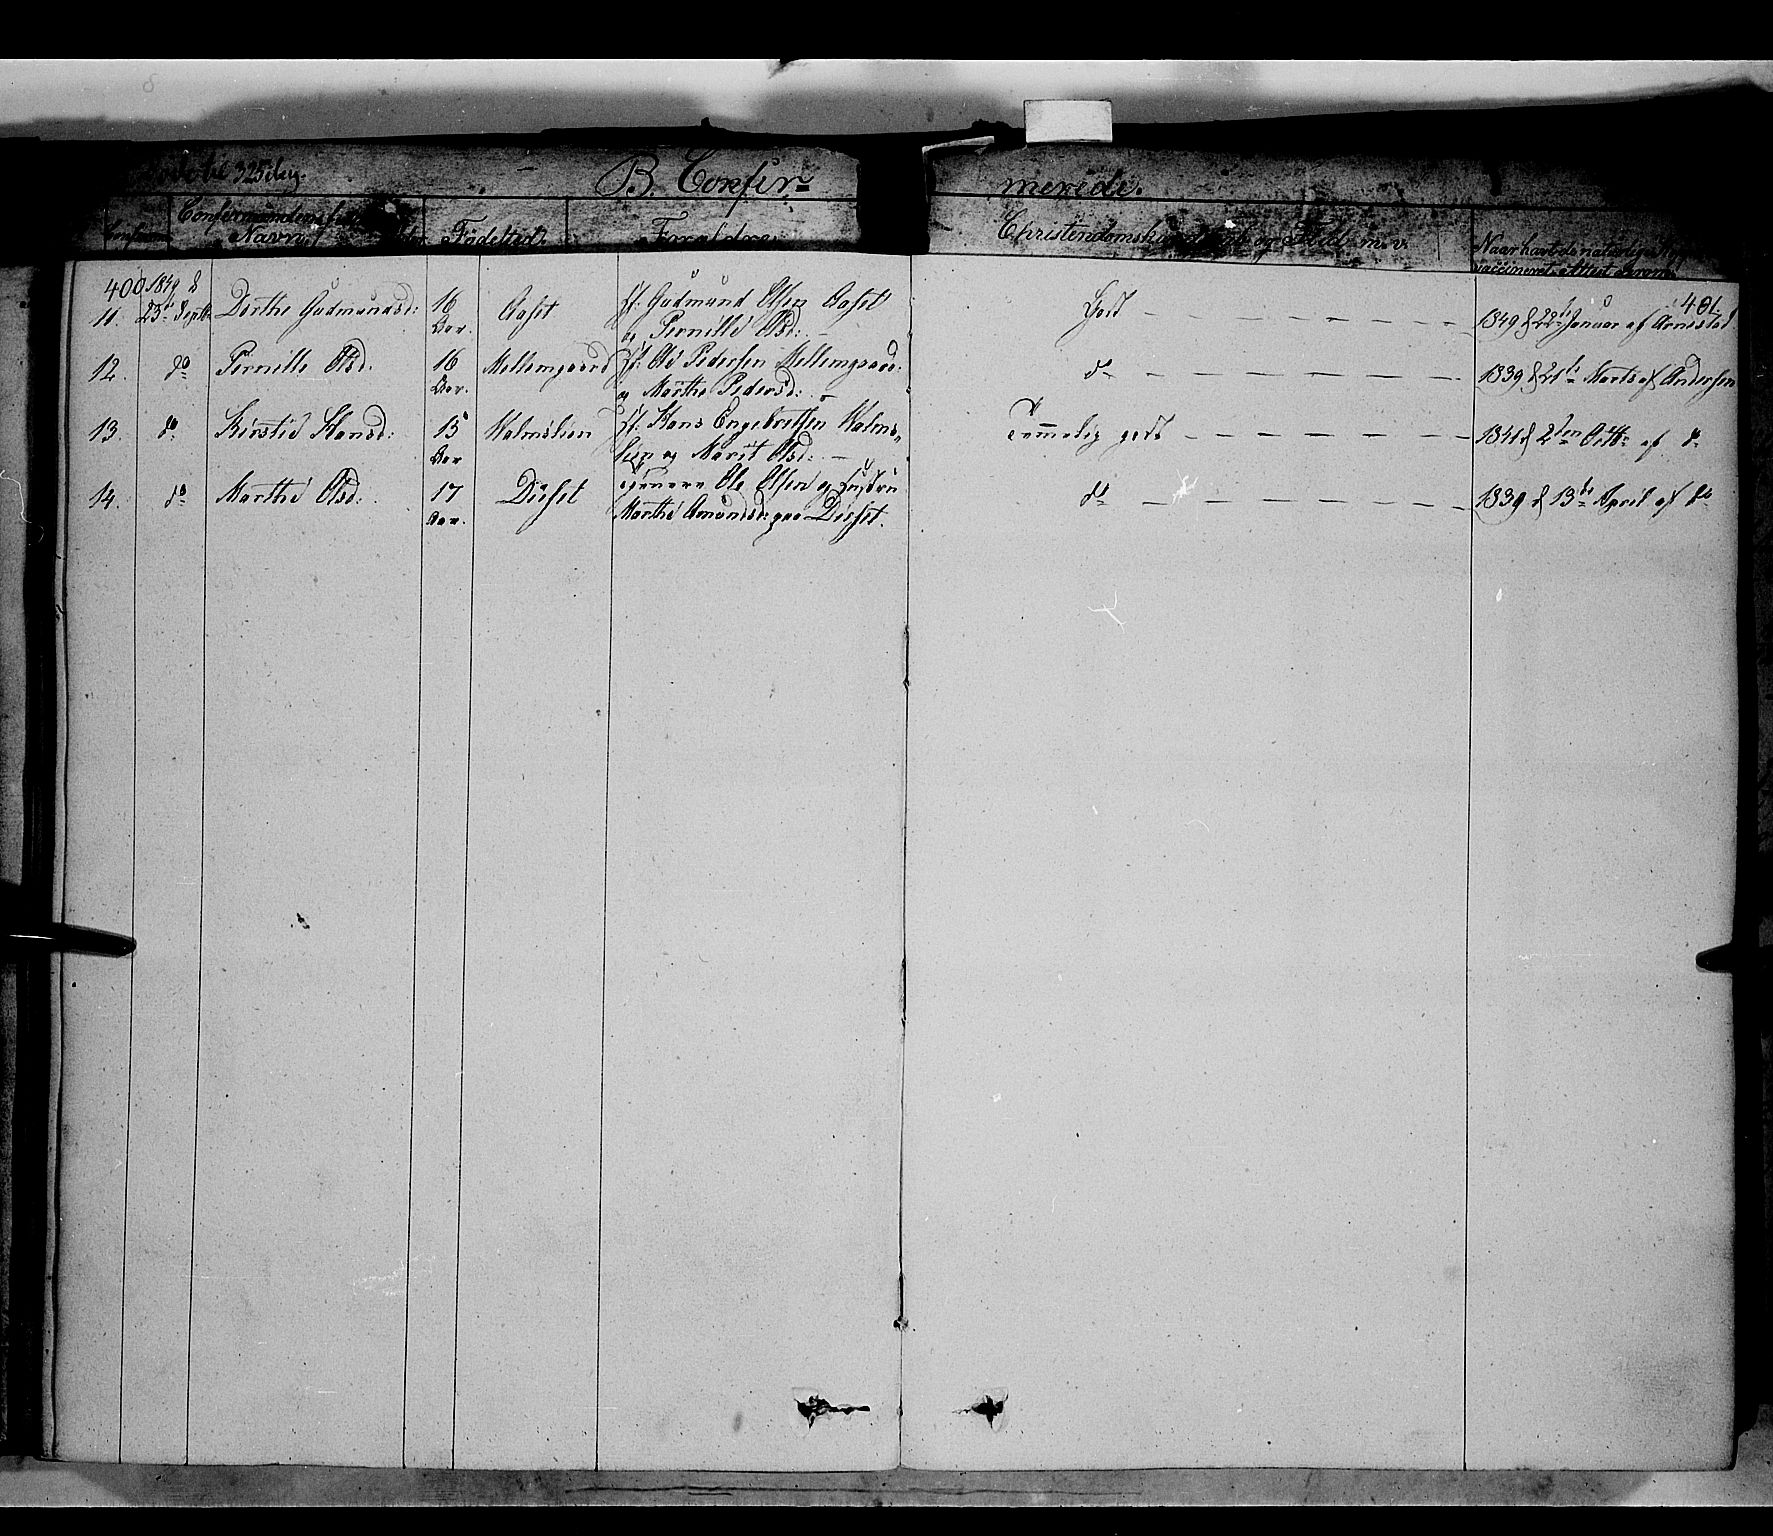 325 day.
B. Confir=
merede.
Navn
Födested
Forældre
Christendomskundskab og Flid m. v.
Naar havt de naturlige
vaccineret
400 1849 d
401.
11. 23d Septb Dorthe Gudmundsd: 16 Aar. Aaset Gudmund Olsen Aaset og Pernille Olsd: – Godt – – – – – – 1849 d 22de Januar af Arnestad.
12. do Pernille Olsd. 16 Aar. Mellemgaard Ole Pedersen Mellemgaard og Marthe Pedersd: – do – – – – – – 1839 d 21de Marts af Andersen
13. do Kirstie Hansd: 15 Aar Halmslien Hans Engebretsen Halmslien og Marit Olsd: – Temmelig godt – – – – – – 1841 d 2den Octbr af do
14. do Marthe Olsd: 17 Aar. Dieset Ole Olsen og Hustru Marthe Amundsd: paa Diset. do – – – – – – 1839 d 13de April af do